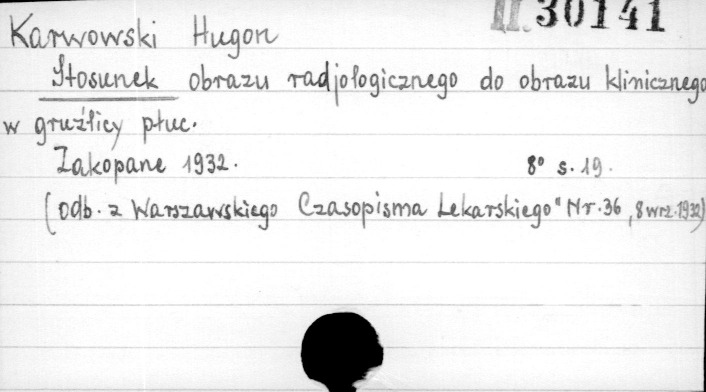 II. 30141
Karwowski Hugon
Stosunek obrazu radjologicznego do obrazu klinicznego
w gruźlicy płuc.
Zakopane 1932. 8° s. 19.
(odb. z Warszawskiego Czasopisma Lekarskiego" Nr. 36, 8 wrz. 1932)